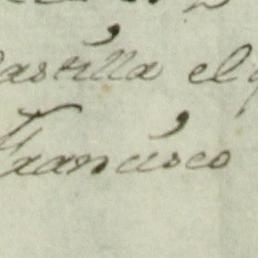 Castilla el
Francisco